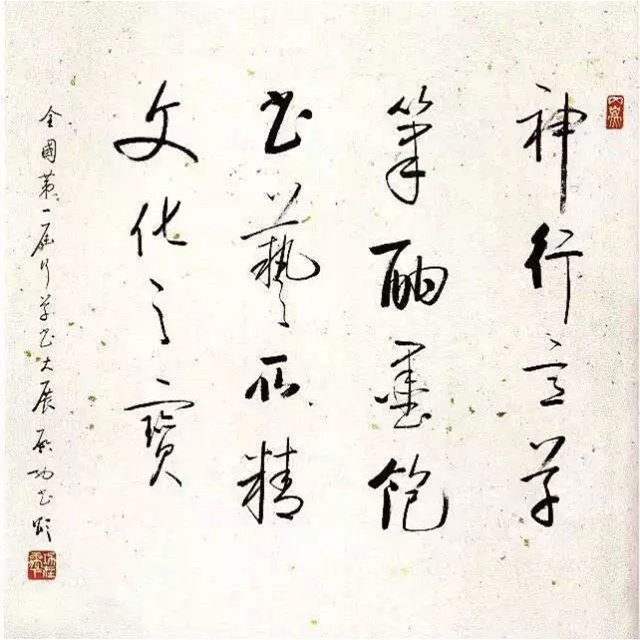 神行草
筆酣墨飽
書藝所精
文化之寶
全國第一屆行草書大展 啟功書